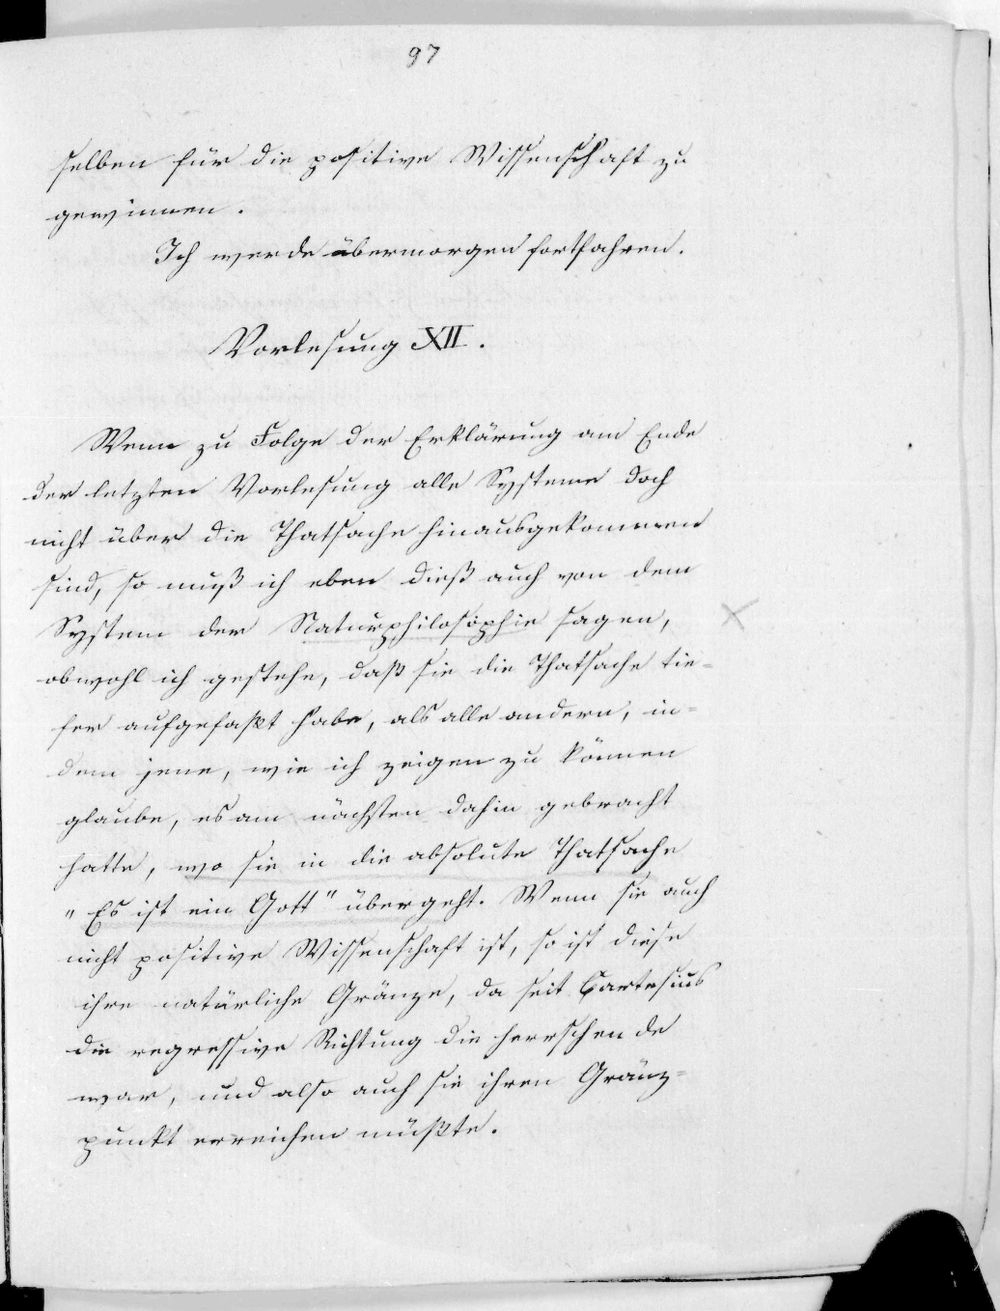 97
selben für die positive Wissenschaft zu
gewinnen.
Ich werde übermorgen fortfahren.
Vorlesung XII.
Wenn zu Folge der Erklärung am Ende
der letzten Vorlesung alle Systeme doch
nicht über die Thatsache hinausgekommen
sind, so muß ich eben dieß auch von dem
System der Naturphilosophie sagen,
obwohl ich gestehe, daß sie die Thatsache tie-
fer aufgefaßt habe, als alle andern, in-
dem jene, wie ich zeigen zu können
glaube, es am nächsten dahin gebracht
hatte, wo sie in die absolute Thatsache
"Es ist ein Gott" übergeht. Wenn sie auch
nicht positive Wissenschaft ist, so ist diese
ihre natürliche Gränze, da seit Cartesius
die regressive Richtung die herrschende
war, und also auch sie ihren Gränz-
punkt erreichen müßte.